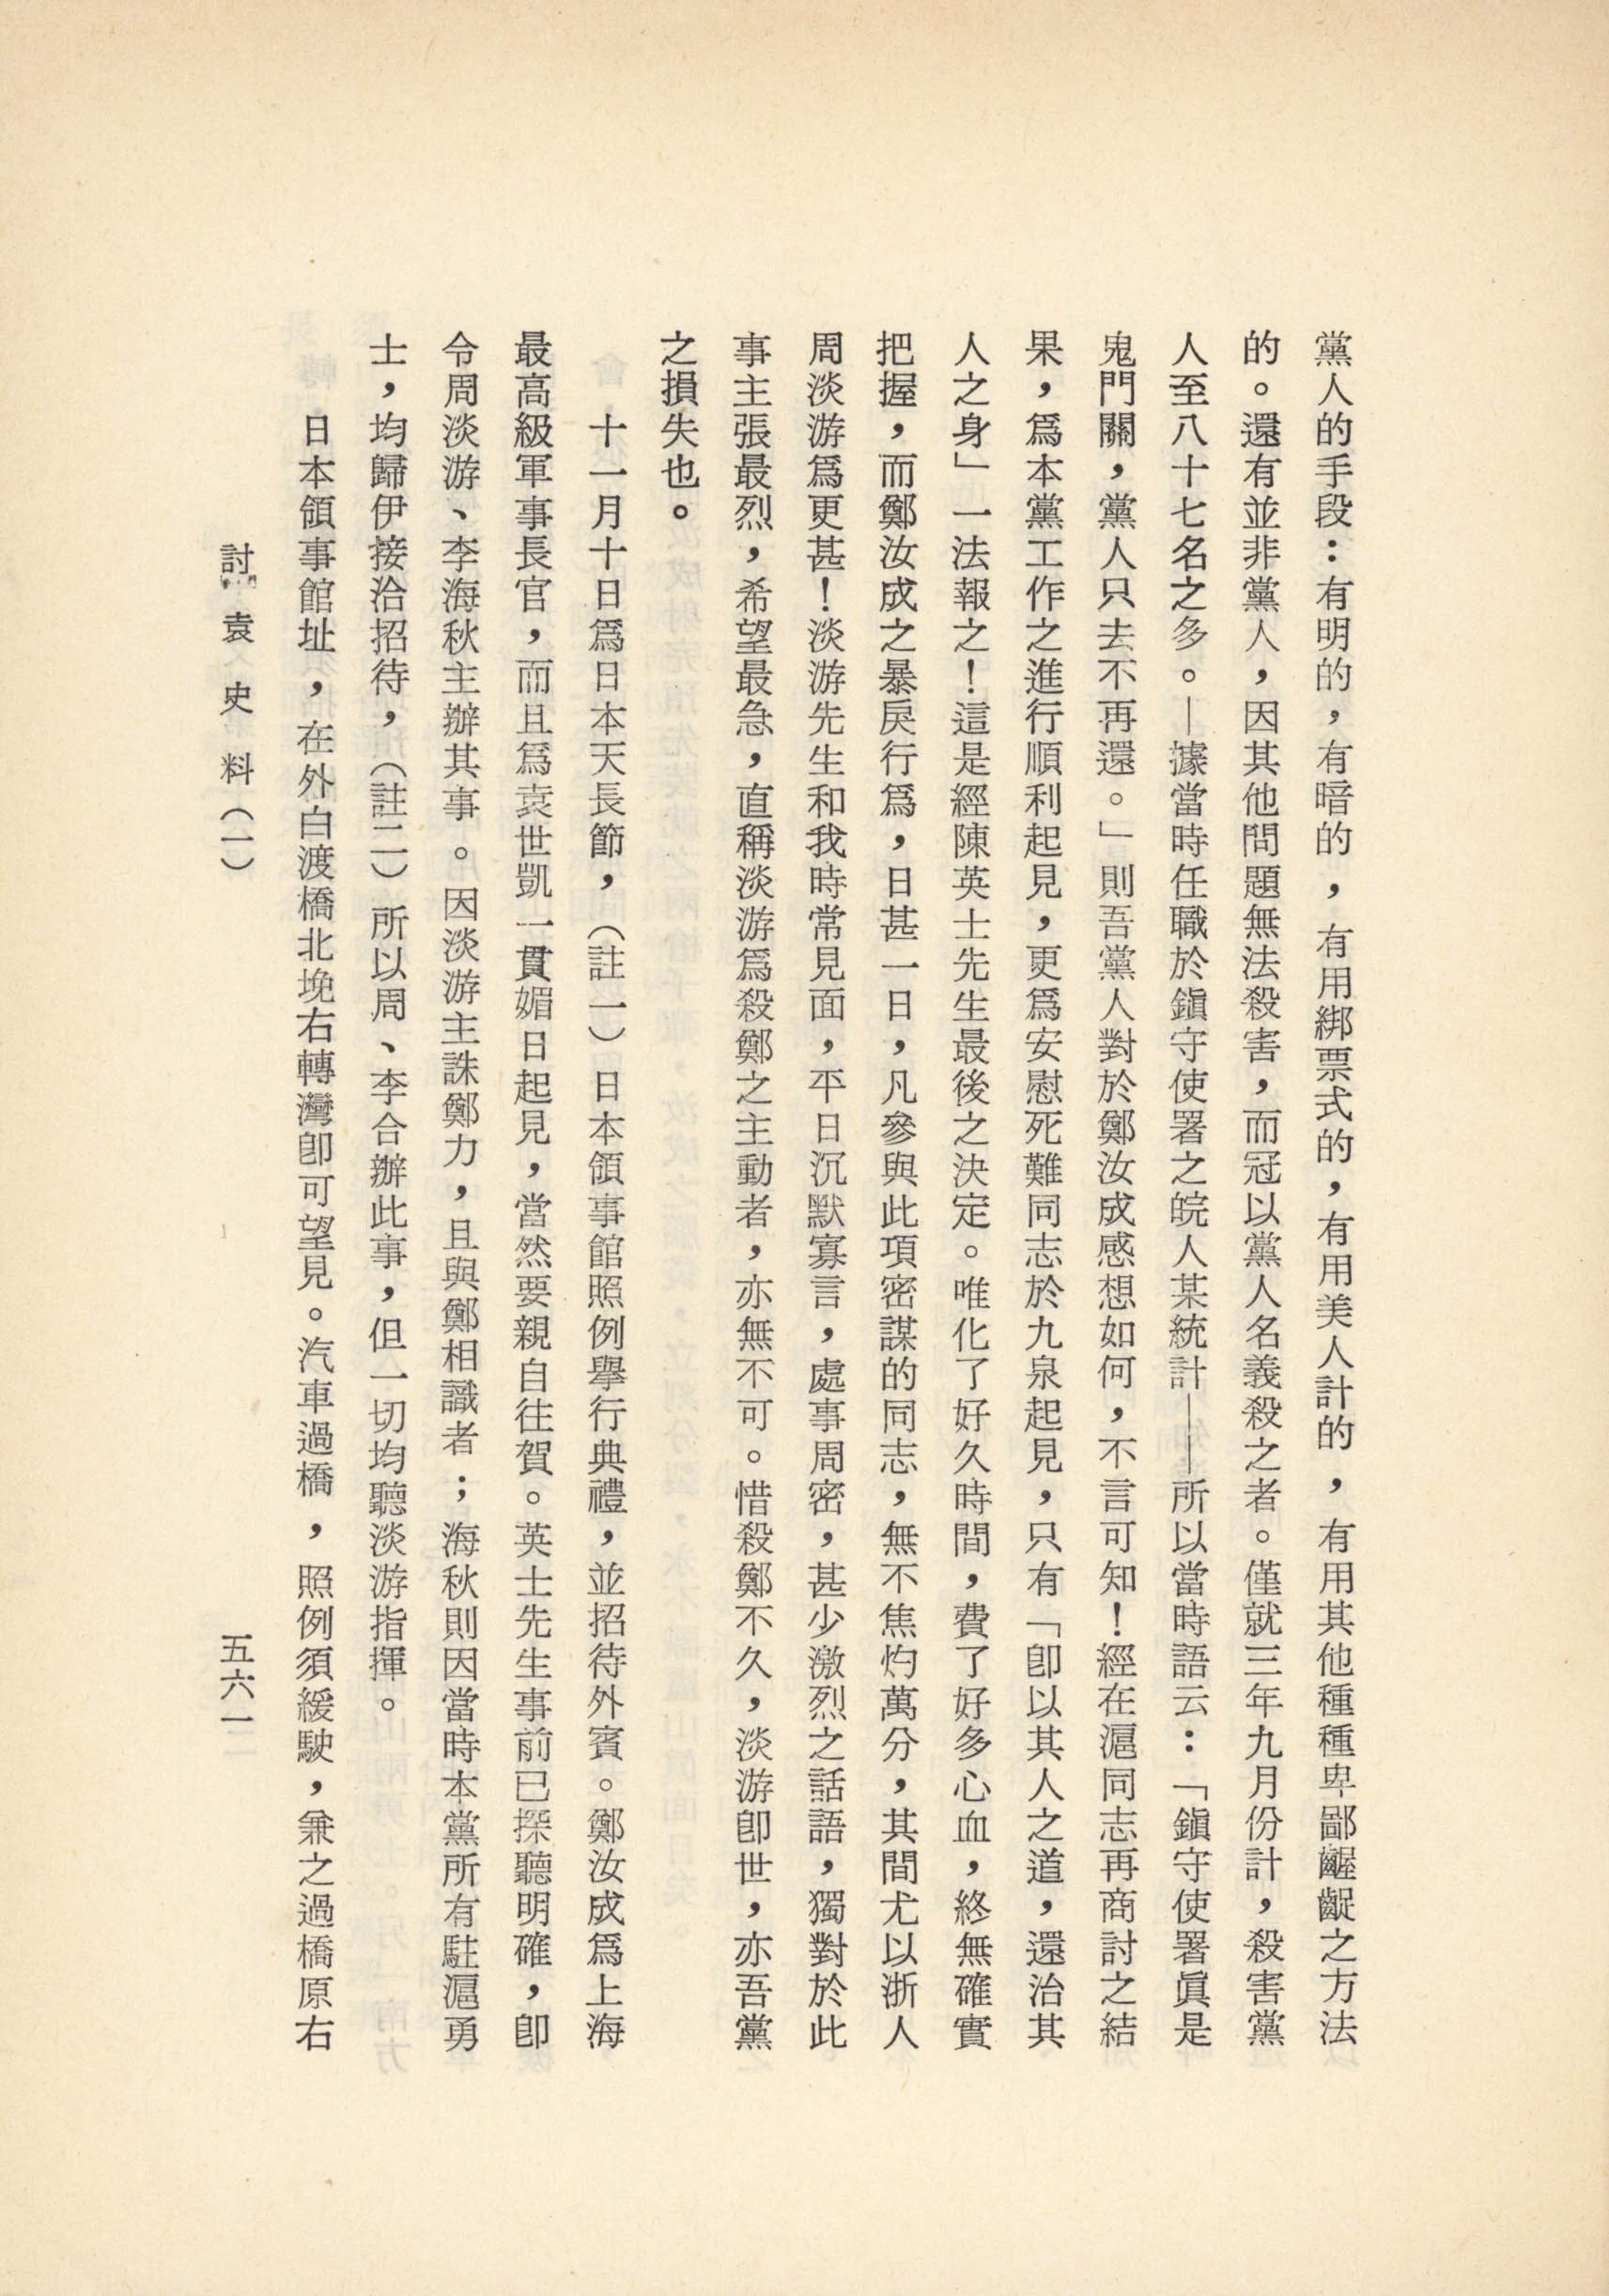 黨人的手段：有明的，有暗的，有用綁票式的，有用美人計的，有用其他種種卑鄙齷齪之方法
的。還有並非黨人，因其他問題無法殺害，而冠以黨人名義殺之者。僅就三年九月份計，殺害黨
人至八十七名之多。—據當時任職於鎭守使署之皖人某統計——所以當時語云：「鎭守使署眞是
鬼門關，黨人只去不再還。」則吾黨人對於鄭汝成感想如何，不言可知！經在滬同志再商討之結
果，爲本黨工作之進行順利起見，更爲安慰死難同志於九泉起見，只有「卽以其人之道，還治其
人之身」一法報之！這是經陳英士先生最後之決定。唯化了好久時間，費了好多心血，終無確實
把握，而鄭汝成之暴戾行爲，日甚一日，凡參與此項密謀的同志，無不焦灼萬分，其間尤以浙人
周淡游爲更甚！淡游先生和我時常見面，平日沉默寡言，處事周密，甚少激烈之話語，獨對於此
事主張最烈，希望最急，直稱淡游爲殺鄭之主動者，亦無不可。惜殺鄭不久，淡游卽世，亦吾黨
之損失也。
十一月十日爲日本天長節，（註一）日本領事館照例舉行典禮，並招待外賓。鄭汝成爲上海
最高級軍事長官，而且爲袁世凱一貫媚日起見，當然要親自往賀。英士先生事前已探聽明確，卽
令周淡游、李海秋主辦其事。因淡游主誅鄭力，且與鄭相識者；海秋則因當時本黨所有駐滬勇
士，均歸伊接洽招待，（註二）所以周、李合辦此事，但一切均聽淡游指揮。
日本領事館址，在外白渡橋北垸右轉灣卽可望見。汽車過橋，照例須緩駛，兼之過橋原右
討袁史料（一）
五六一